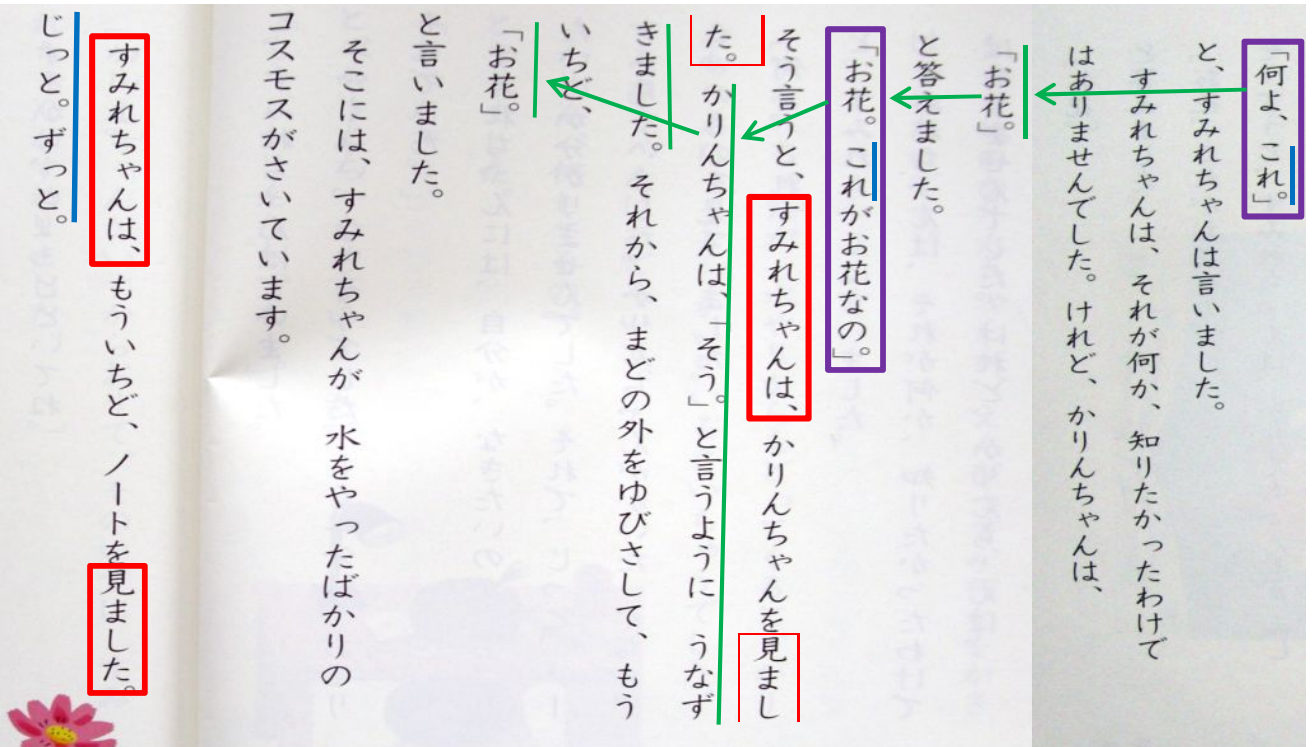 「何よ、これ。」
と、すみれちゃんは言いました。
すみれちゃんは、それが何か、知りたかったわけで
はありませんでした。けれど、かりんちゃんは、
「お花。」
と答えました。
「お花。これがお花なの」
そう言うと、すみれちゃんは、かりんちゃんを見まし
た。かりんちゃんは、「そう。」と言うように うなず
きました。それから、まどの外をゆびさして、もう
いちど、
「お花。」
と言いました。
そこには、すみれちゃんが 水をやったばかりの
コスモスがさいています。
すみれちゃんは、もういちど、ノートを見ました。
じっと。ずっと。